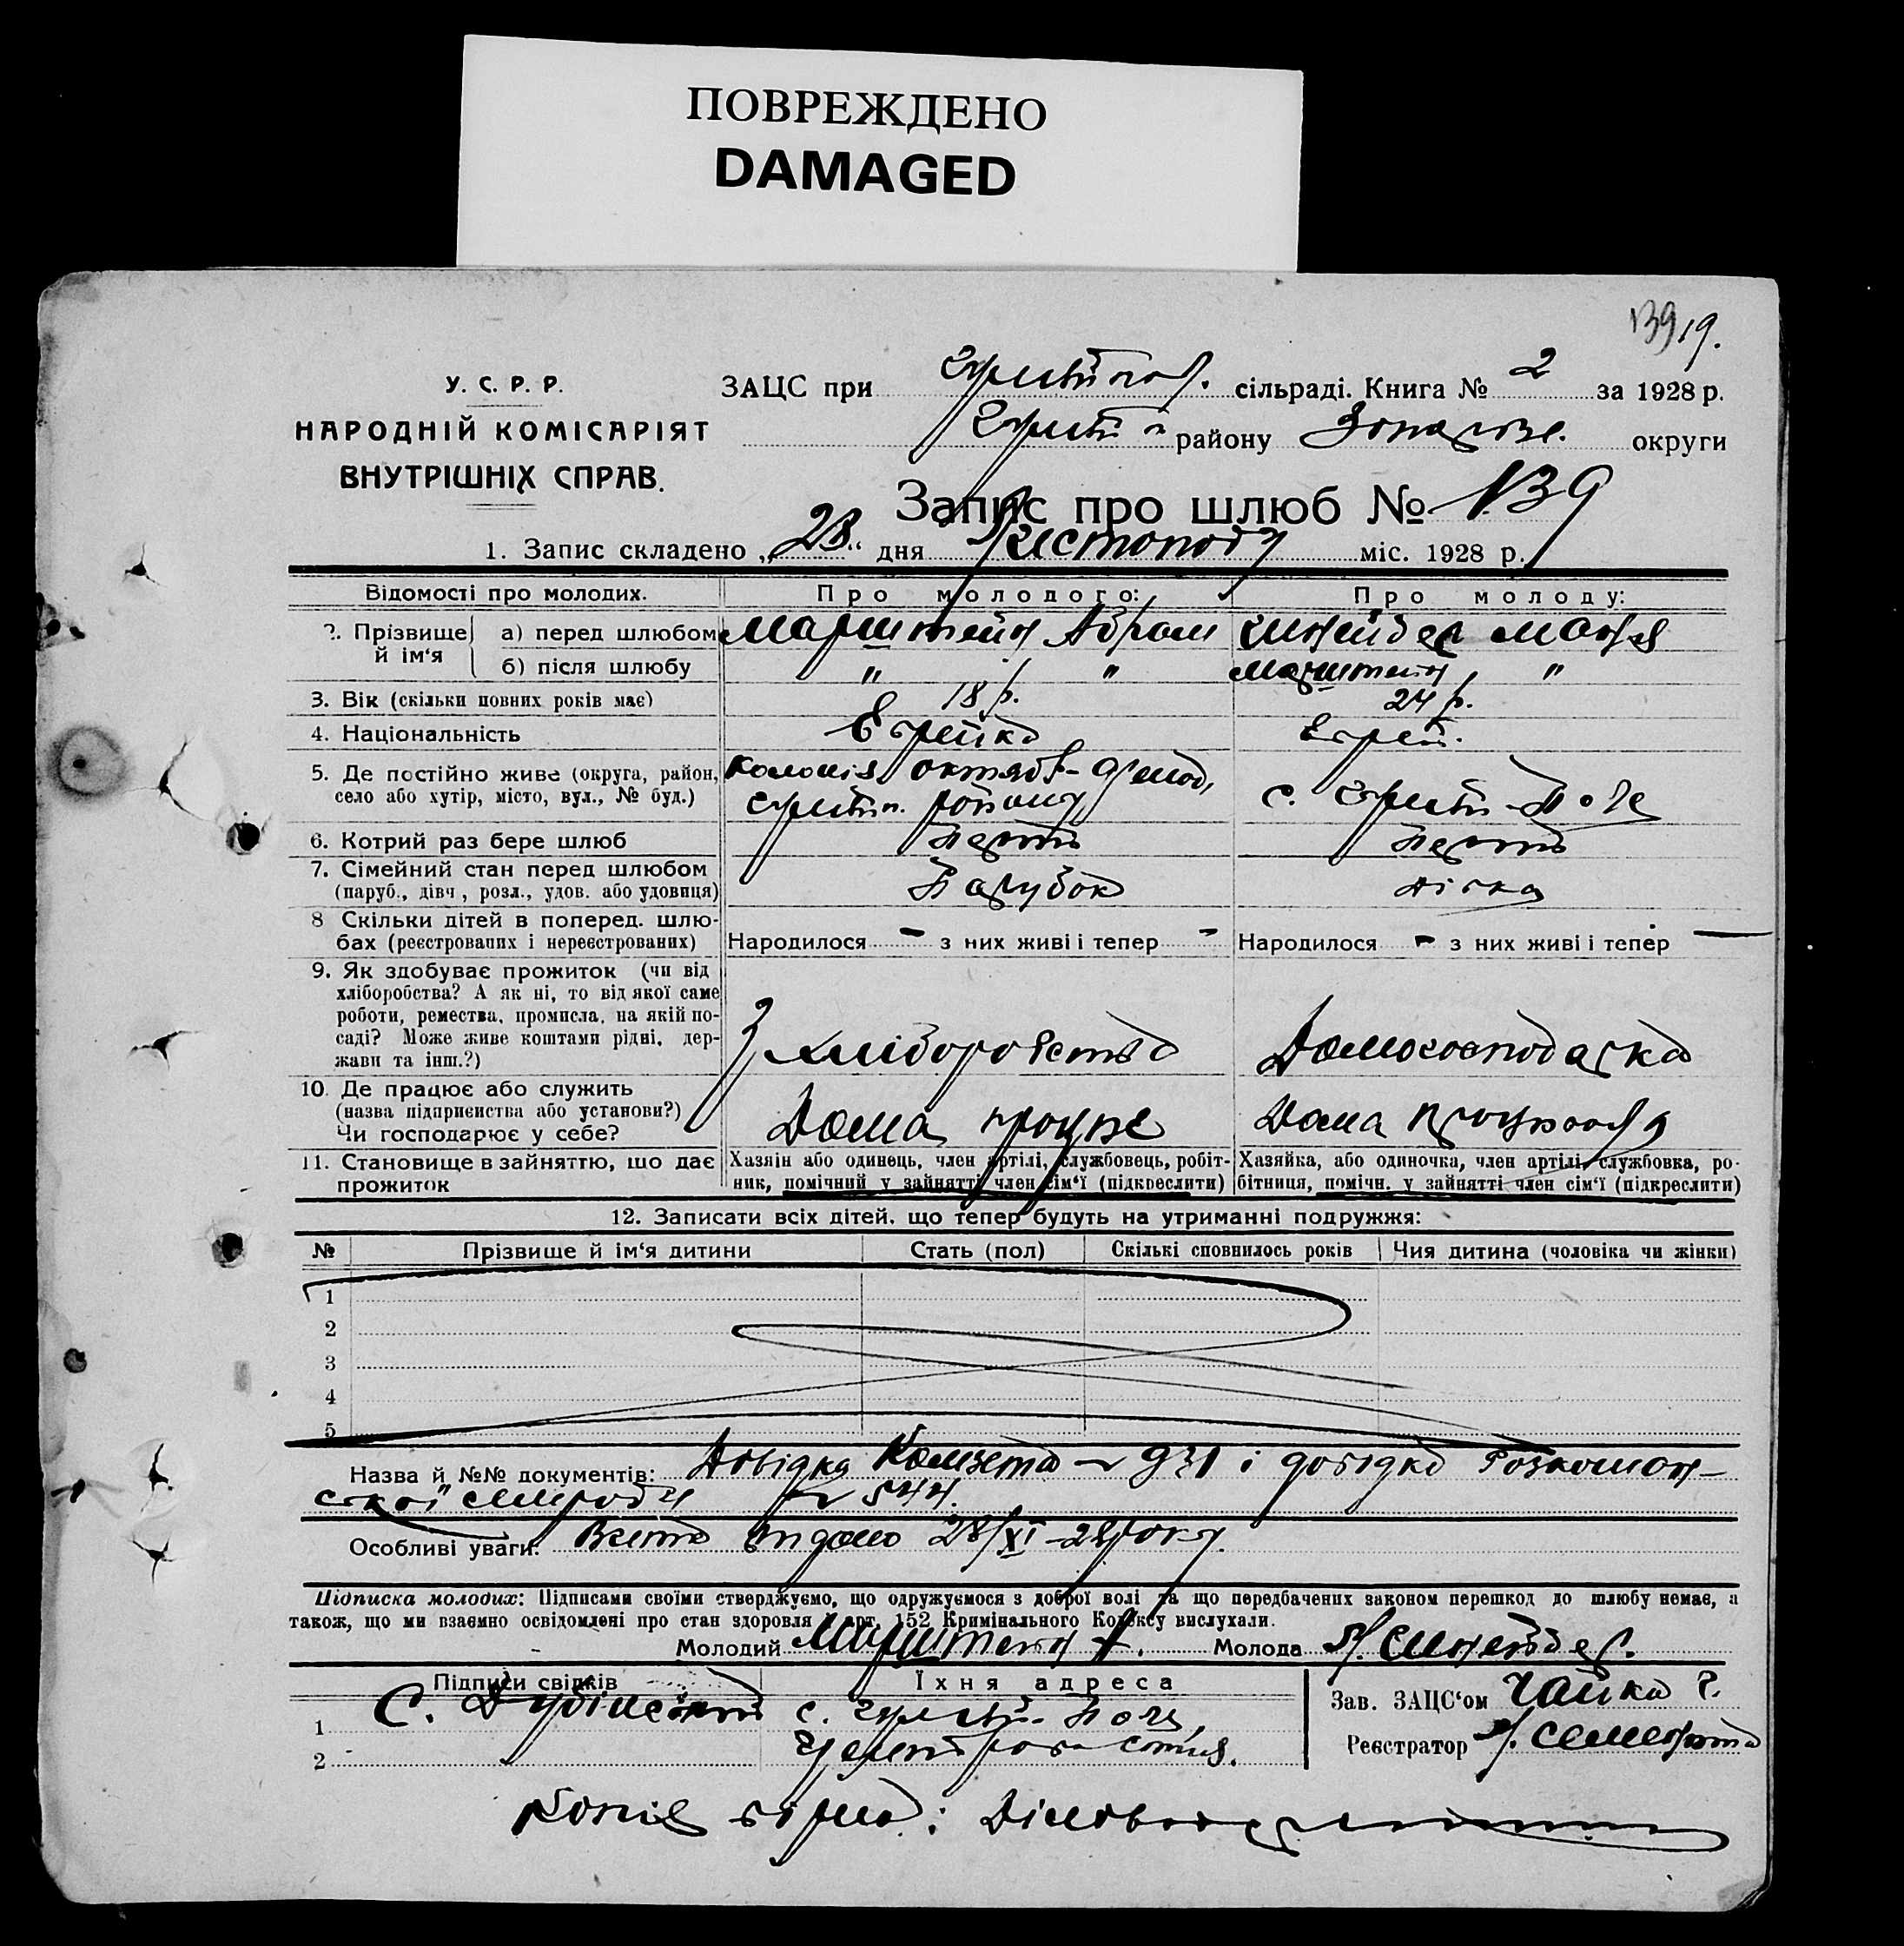 ПОВРЕЖДЕНО
DAMAGED
139 19.
У. С. Р. Р.
НАРОДНІЙ КОМІСАРІЯТ
ВНУТРІШНІХ СПРАВ.
ЗАЦС при сільраді. Книга № 2 за 1928 р.
району округи
Запис про шлюб № 139
1. Запис складено „28“ дня Листопаду міс. 1928 р.
Відомості про молодих. Про молодого: Про молоду:
2. Прізвище й ім‘я а) перед шлюбом Марштейн Абрам Шнейдер Маня
б) після шлюбу " " Марштейн "
3. Вік (скільки повних років має) 18 р. 24 р.
4. Національність Еврей.
5. Де постійно живе (округа, район, Колонія
село або хутір, місто, вул., № буд.) району с.
6. Котрий раз бере шлюб
7. Сімейний стан перед шлюбом
(паруб., дівч, розл., удов. або удовиця) Парубок Дівка
8 Скільки дітей в поперед. шлю-
бах (реєстрованих і нереєстрованих) Народилося - з них живі і тепер - Народилося - з них живі і тепер —
9. Як здобуває прожиток (чи від
хліборобства? А як ні, то від якої саме
роботи, ремества, промисла, на якій по-
саді? Може живе коштами рідні, дер-
жави та інш.?) З хліборобства Домогосподарка
10. Де працює або служить
(назва підприємства або установи?)
Чи господарює у себе? Дома працює Дома
11. Становище в зайняттю, що дає Хазяін або одинець, член артілі, службовець, робіт- Хазяйка, або одиночка, член артілі, службовка, ро-
прожиток ник, помічний у зайнятті член сім‘ї (підкреслити) бітниця, помічн. у зайнятті член сім‘ї (підкреслити)
12. Записати всіх дітей, що тепер будуть на утриманні подружжя:
№ Прізвище й ім‘я дитини Стать (пол) Скількі сповнилось років Чия дитина (чоловіка чи жінки)
1
2
3
4
5
Назва й №№ документів: Довідка Комзета № 931 і довідка
сільради № 544.
Особливі уваги: видано 28/XI-28 року.
Підписка молодих: Підписами своїми стверджуємо, що одружуємося з доброї волі та що передбачених законом перешкод до шлюбу немає, а
також, що ми взаємно освідомлені про стан здоровля й арт. 152 Кримінального Кодексу вислухали.
Молодий Марштейн А. Молода М. Шнейдер.
Підписи свідків Їхня адреса
1 С. с.
2
Зав. ЗАЦС‘ом Чайка
Реєстратор
Копія вірна: Діловод